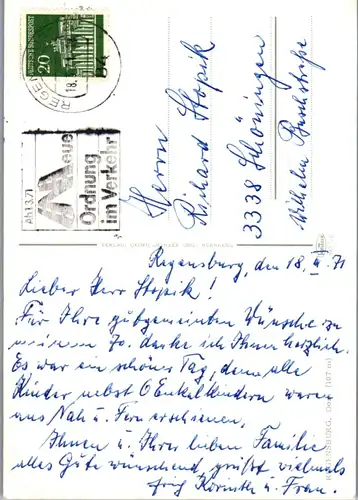 DEUTSCHE BUNDESPOST
20
REGEN
18.
Ab 1.3.71
Neue
Ordnung
im Verkehr
Herrn
Richard Stopik
3338 Schöningen
Wilhelm Buschstraße
Regensburg, den 18. 4. 71
Lieber Herr Stopik!
Für Ihre gutgemeinten Wünsche zu
meinem 70. danke ich Ihnen herzlich.
Es war ein schöner Tag, denn alle
Kinder nebst 6 Enkelkindern waren
aus Nah u. Fern erschienen.
Ihnen u. Ihrer lieben Familie
alles Gute wünschend, grüßt vielmals
Frig Korinth u. Frau.
REGENSBURG, Dom (107 m)